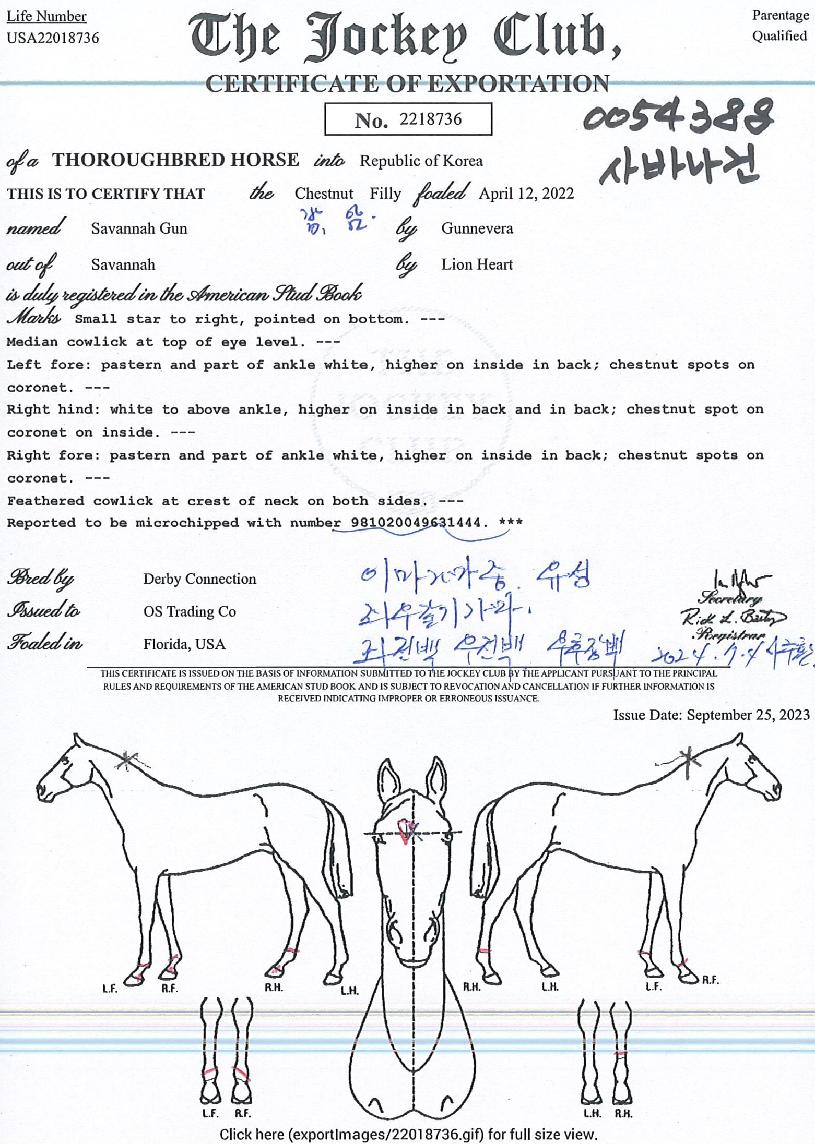 Life Number
USA22018736
The Jockey Club,
Parentage
Qualified
CERTIFICATE OF EXPORTATION
No. 2218736
0054388
사바나건
of a THOROUGHBRED HORSE into Republic of Korea
THIS IS TO CERTIFY THAT the Chestnut Filly foaled April 12, 2022
named Savannah Gun by Gunnevera
out of Savannah by Lion Heart
is duly registered in the American Stud Book
Marks Small star to right, pointed on bottom. ---
Median cowlick at top of eye level. ---
Left fore: pastern and part of ankle white, higher on inside in back; chestnut spots on
coronet. ---
Right hind: white to above ankle, higher on inside in back and in back; chestnut spot on
coronet on inside. ---
Right fore: pastern and part of ankle white, higher on inside in back; chestnut spots on
coronet. ---
Feathered cowlick at crest of neck on both sides. ---
Reported to be microchipped with number 981020049631444. ***
THE JOCKEY CLUB
Bred by Derby Connection
Issued to OS Trading Co
좌우갈기가마.
Secretary
Registrar
Foaled in Florida, USA
좌전백 우전백 우후장백
2024.7.4
THIS CERTIFICATE IS ISSUED ON THE BASIS OF INFORMATION SUBMITTED TO THE JOCKEY CLUB BY THE APPLICANT PURSUANT TO THE PRINCIPAL
RULES AND REQUIREMENTS OF THE AMERICAN STUD BOOK AND IS SUBJECT TO REVOCATION AND CANCELLATION IF FURTHER INFORMATION IS
RECEIVED INDICATING IMPROPER OR ERRONEOUS ISSUANCE.
Issue Date: September 25, 2023
L.F. R.F. R.H. L.H. R.H. L.H. L.F. R.F.
L.F. R.F. L.H. R.H.
Click here (exportImages/22018736.gif) for full size view.